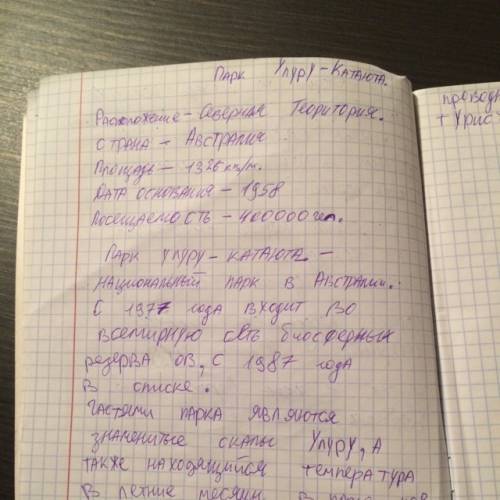 Парк Улуру-Катаюта.
Расположение - Северная Теоритория.
Страна - Австралия
Площадь - 1326 кв/м.
Дата основания - 1958
Посещаемость - 400000 чел.
Парк Улуру-Катаюта -
национальный парк в Австралии.
С 1977 года входит во
всемирную сеть биосферных
резерва ов, с 1987 года
в списке.
Частями парка являются
знаменитые скалы Улуру, а
также находящийся температура
в летние месяцы в